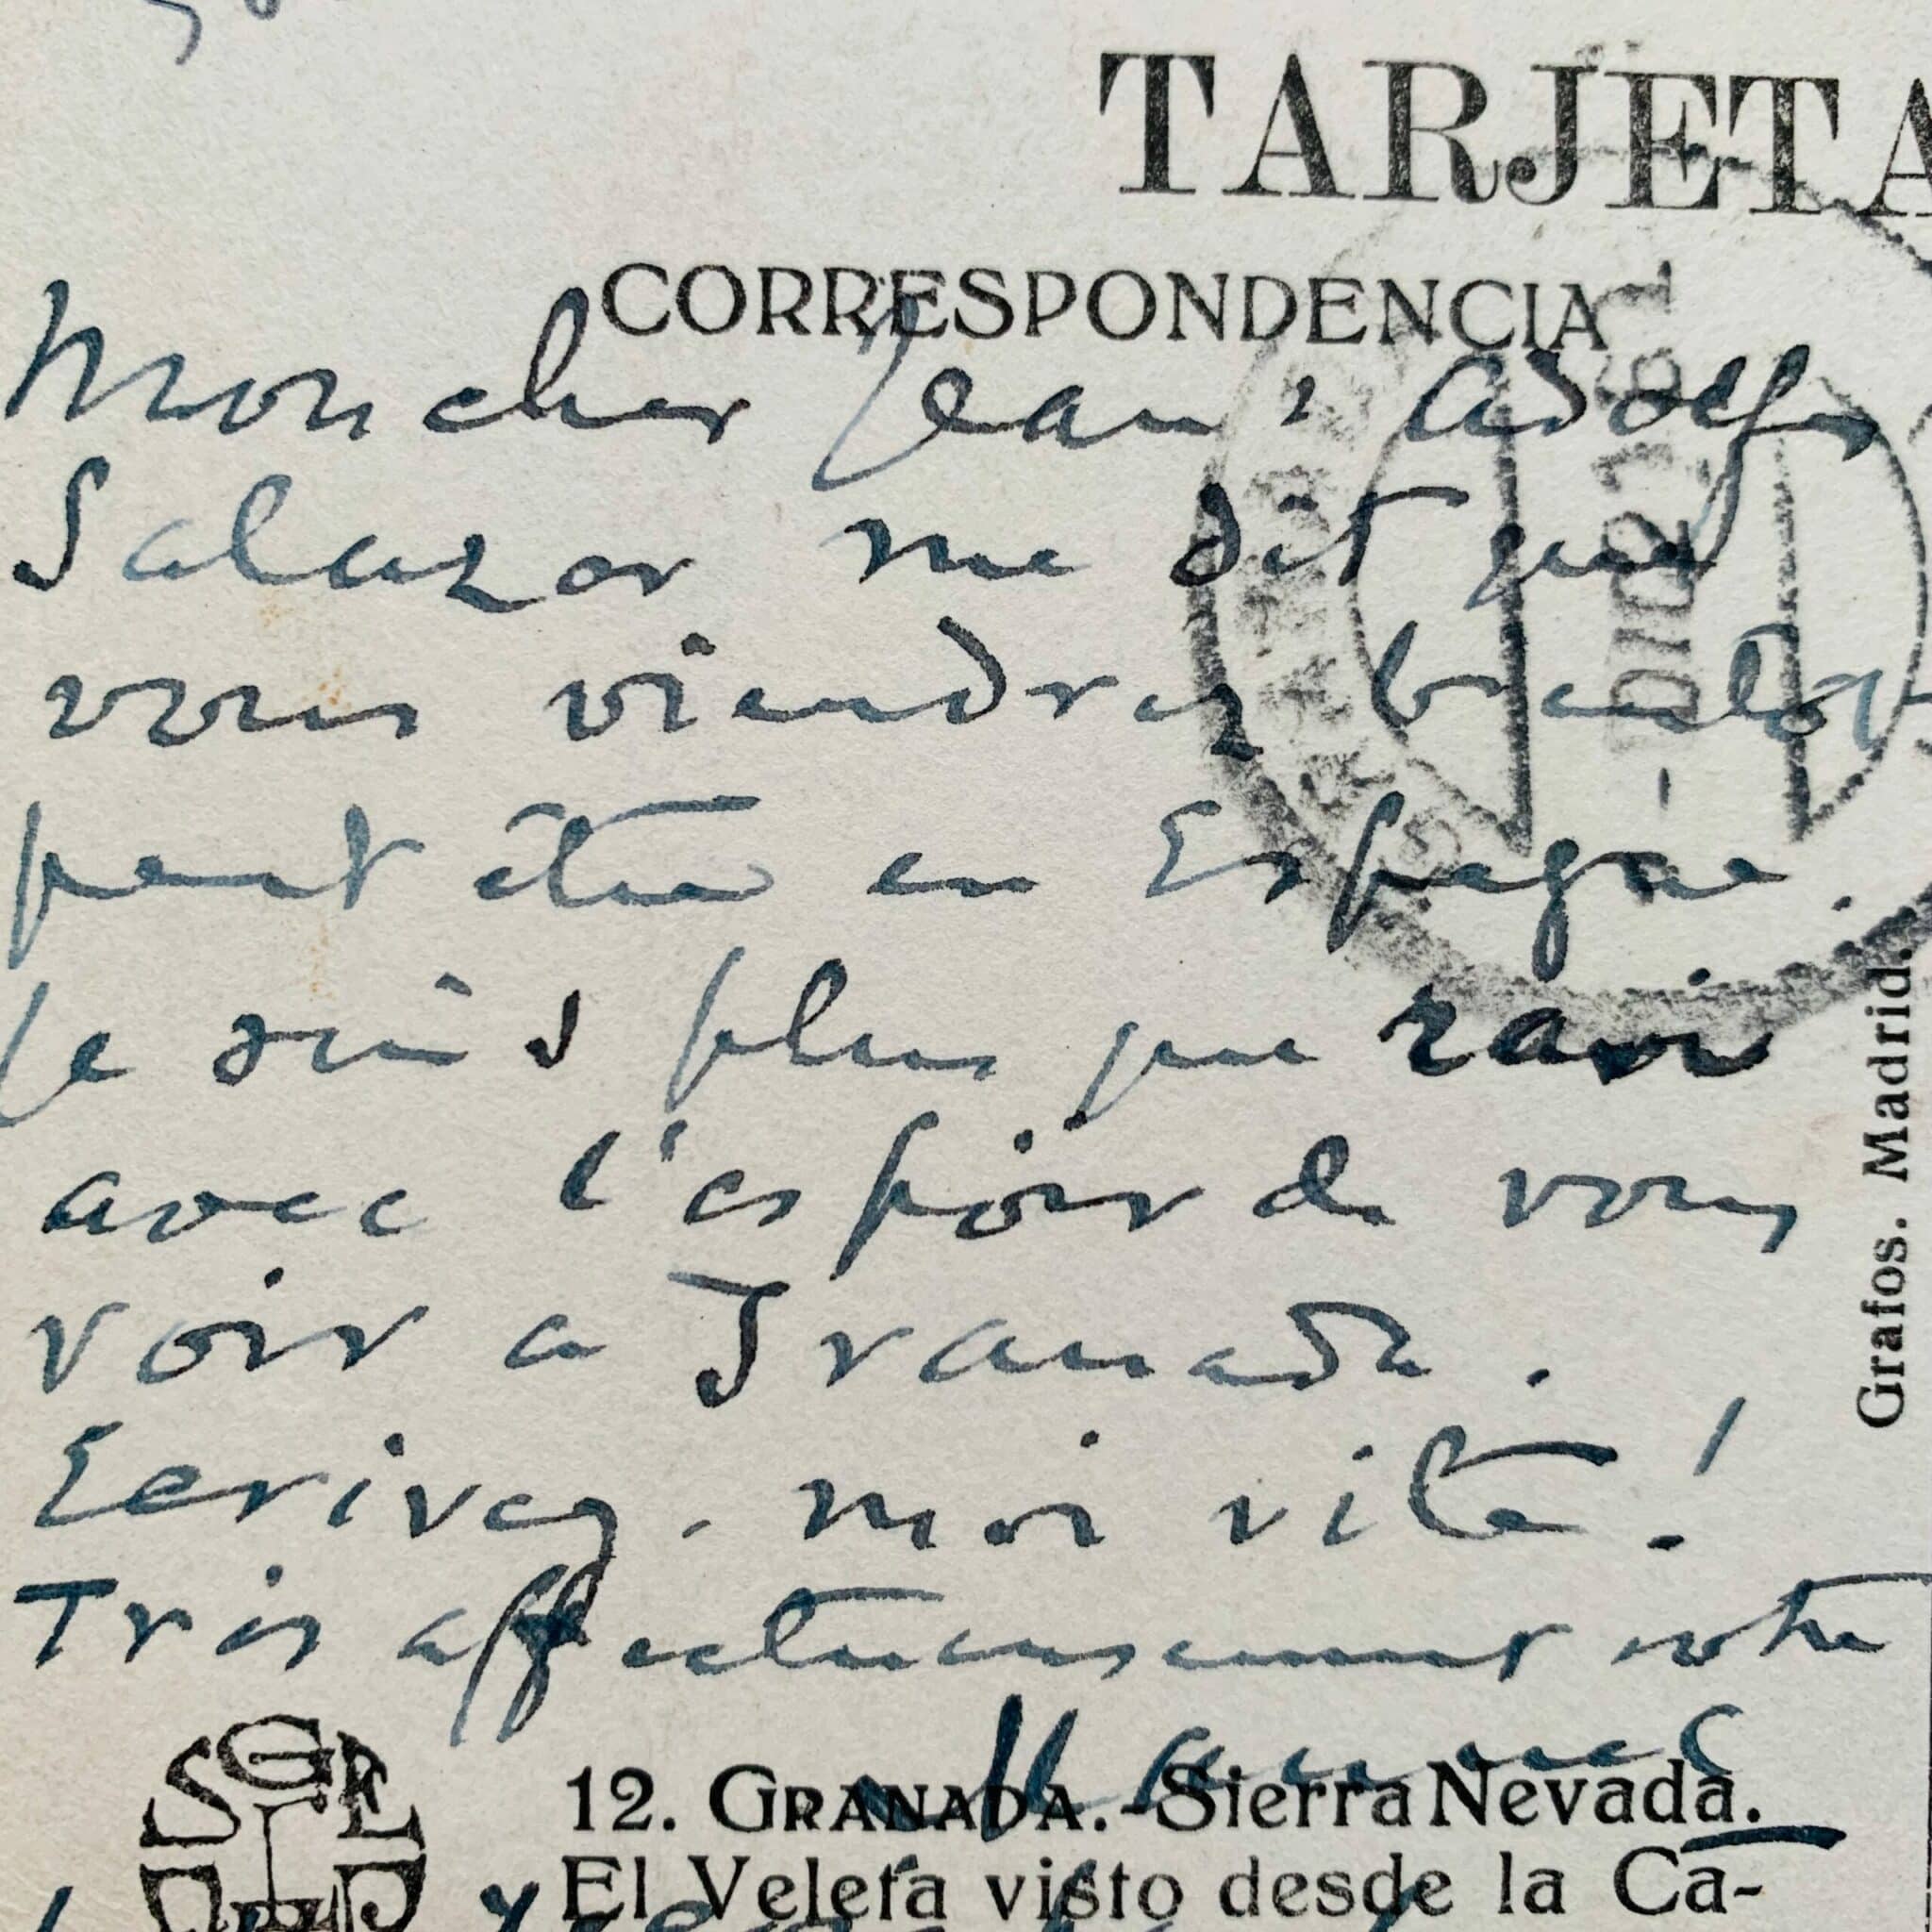 TARJETA
CORRESPONDENCIA
Mon cher Jean : Adolfo
Salazar me dit que
vous viendrez bientôt
peut être en Espagne.
Je suis plus que ravi
avec l'espoir de vous
voir a Granada.
Ecrivez-moi vite!
Très affectueusement votre
Manuel
12. GRANADA.-Sierra Nevada.
El Veleta visto desde la Ca-
Grafos. Madrid.
SGEL
DIC